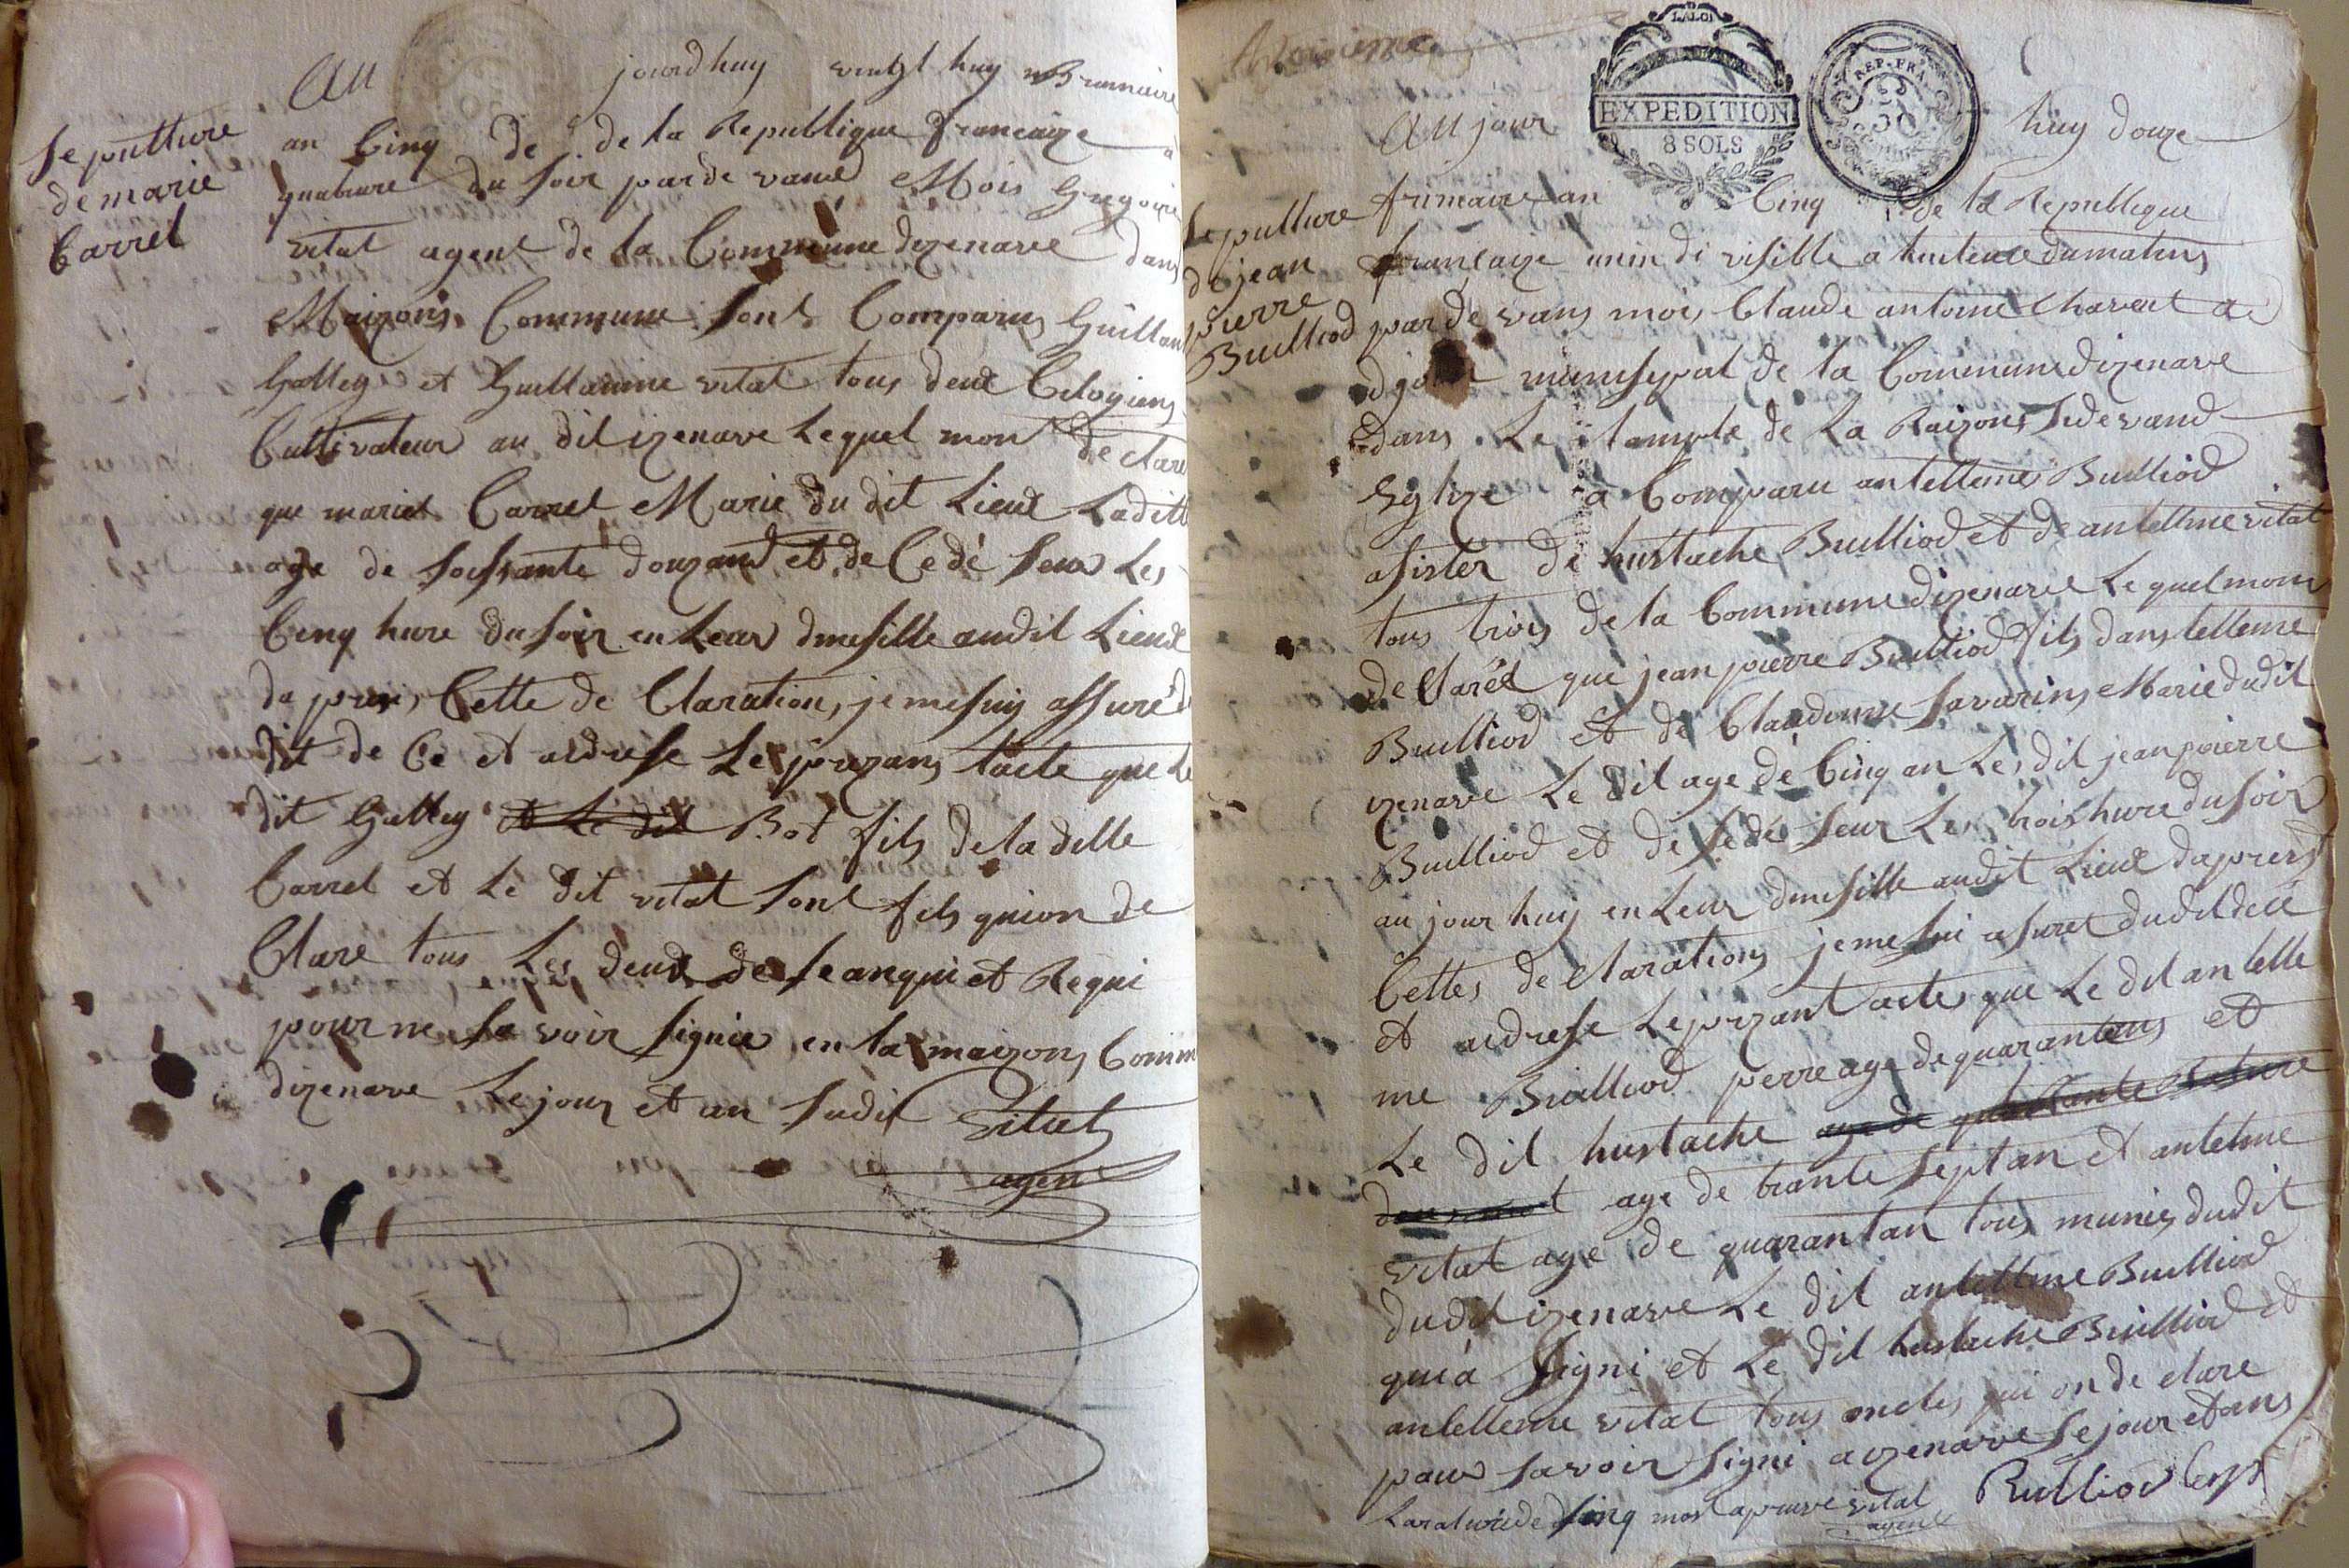 Au jourdhuy vintgt huy Brumaire
an Cinq de de la Republique francaize a
quatuure du soir par de vand Mois Gregoire
vital agent de la Commune dizenave dans
Maizons Commune sont Comparus Guillau
Galley et Guillaume vital tous deux Citoyens
Cultivateur au dit izenave Lequel mon de clare
que mariet Carrel Marie du dit Lieud Laditte
age de soissante douzand et de Cedé seur Les
Cinq hure du soir en Leur dmesille audit Lieud
da pres Cette de Claration, je me suis assuré d
dit de Cé et aidresse Le prezans tacte que Le
dit Galley et Le dit Bot fils de la ditte
Carrel et Le dit vital sont fils qui on de
Clare tous Les deux de se anqui et Requi
pour ne sa voir signie en la maizons Comm
dizenave Le jour et an sudit Vital
agent
sepulture
de marie
Carrel
EXPEDITION
8 SOLS
LA LOI
REP. FRA.
Au jour huy douze
frimaire an Cinq de la Republique
francaize unin di visible a huiteure du matins
par de vans mois Claude antoine Charvet a
djoint munisypal de la Commune dizenave
dans Le temple de La Raizons sidevand
Eglize a Comparu antelleme Buelliod
asister de hustache Buelliod et de antellme vital
tous trois de la Commune dizenave Le quel mon
de Claret que jean pierre Buelliod fils dans telleme
Buelliod et de Claudinne savarins Marie dudit
izenave Le dit age de Cinq an Les dit jean pierre
Buelliod et de sedé seur Les trois hure du soir
au jour huy en Leur dmesille audit Lieud dapres
Cettes de Clarations je me sui asuret dudit decé
et aidresse Le prezant actes que Le dit antelle
me Buelliod perre age de quarantens et
Le dit hustache age de quarante
age de trante sept an et antelme
vital age de quarantan tous munies dudit
dudit izenave Le dit antellme Buelliod
qui a signi et Le dit hustache Buelliod et
antelleme vital tous oncles qui on de clare
pau savoir signi a izenave Le jour et ans
Laratuire de sinq mos apreuve vital Buelliod
agent
sepulture
de jean
pierre
Buelliod